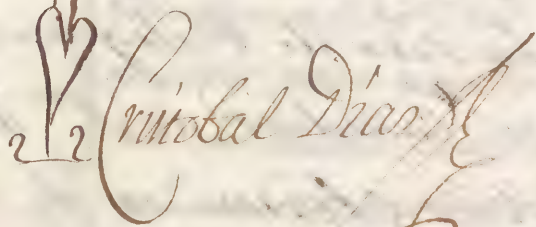 Cristobal Dias